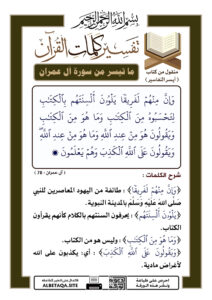 بسم الله الرحمن الرحيم
تفسير كلمات القرآن
ما تيسر من سورة آل عمران
منقول من كتاب
( أيسر التفاسير )
وَإِنَّ مِنْهُمْ لَفَرِيقًا يَلْوُونَ أَلْسِنَتَهُم بِالْكِتَابِ
لِتَحْسَبُوهُ مِنَ الْكِتَابِ وَمَا هُوَ مِنَ الْكِتَابِ
وَيَقُولُونَ هُوَ مِنْ عِندِ اللَّهِ وَمَا هُوَ مِنْ عِندِ اللَّهِ
وَيَقُولُونَ عَلَى اللَّهِ الْكَذِبَ وَهُمْ يَعْلَمُونَ
( آل عمران - 78 )
شرح الكلمات :
﴿وَإِنَّ مِنْهُمْ لَفَرِيقًا﴾ : طائفة من اليهود المعاصرين للنبي
صَلَّى اللهُ عَلَيْهِ وَسَلَّمَ بالمدينة النبوية.
﴿يَلْوُونَ أَلْسِنَتَهُم﴾ : يحرفون ألسنتهم بالكلام كأنهم يقرأون
الكتاب.
﴿وَمَا هُوَ مِنَ الْكِتَابِ﴾ : وليس هو من الكتاب.
﴿وَيَقُولُونَ عَلَى اللَّهِ الْكَذِبَ﴾ : أي: يكذبون على الله
لأغراض مادية.
ALBETAQA.SITE